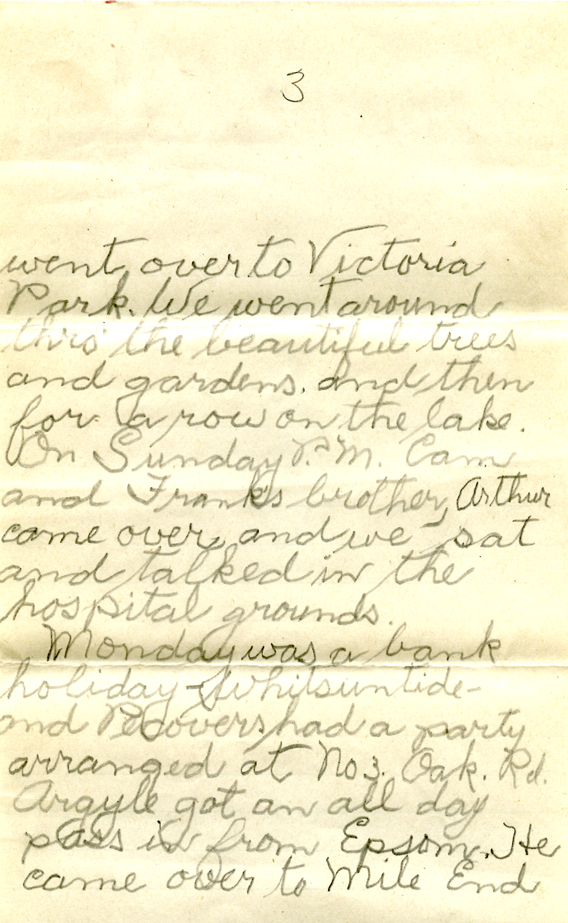 3
went over to Victoria
Park. We went around
thro' the beautiful trees
and gardens. and then
for a row on the lake.
On Sunday P.M. Cam
and Franks brother, Arthur
came over, and we sat
and talked in the
hospital grounds.
Monday was a bank
holiday - Whitsuntide -
and had a party
arranged at No 3. Oak. Rd.
Argyle got an all day
pass in from Epsom. He
came over to Mile End